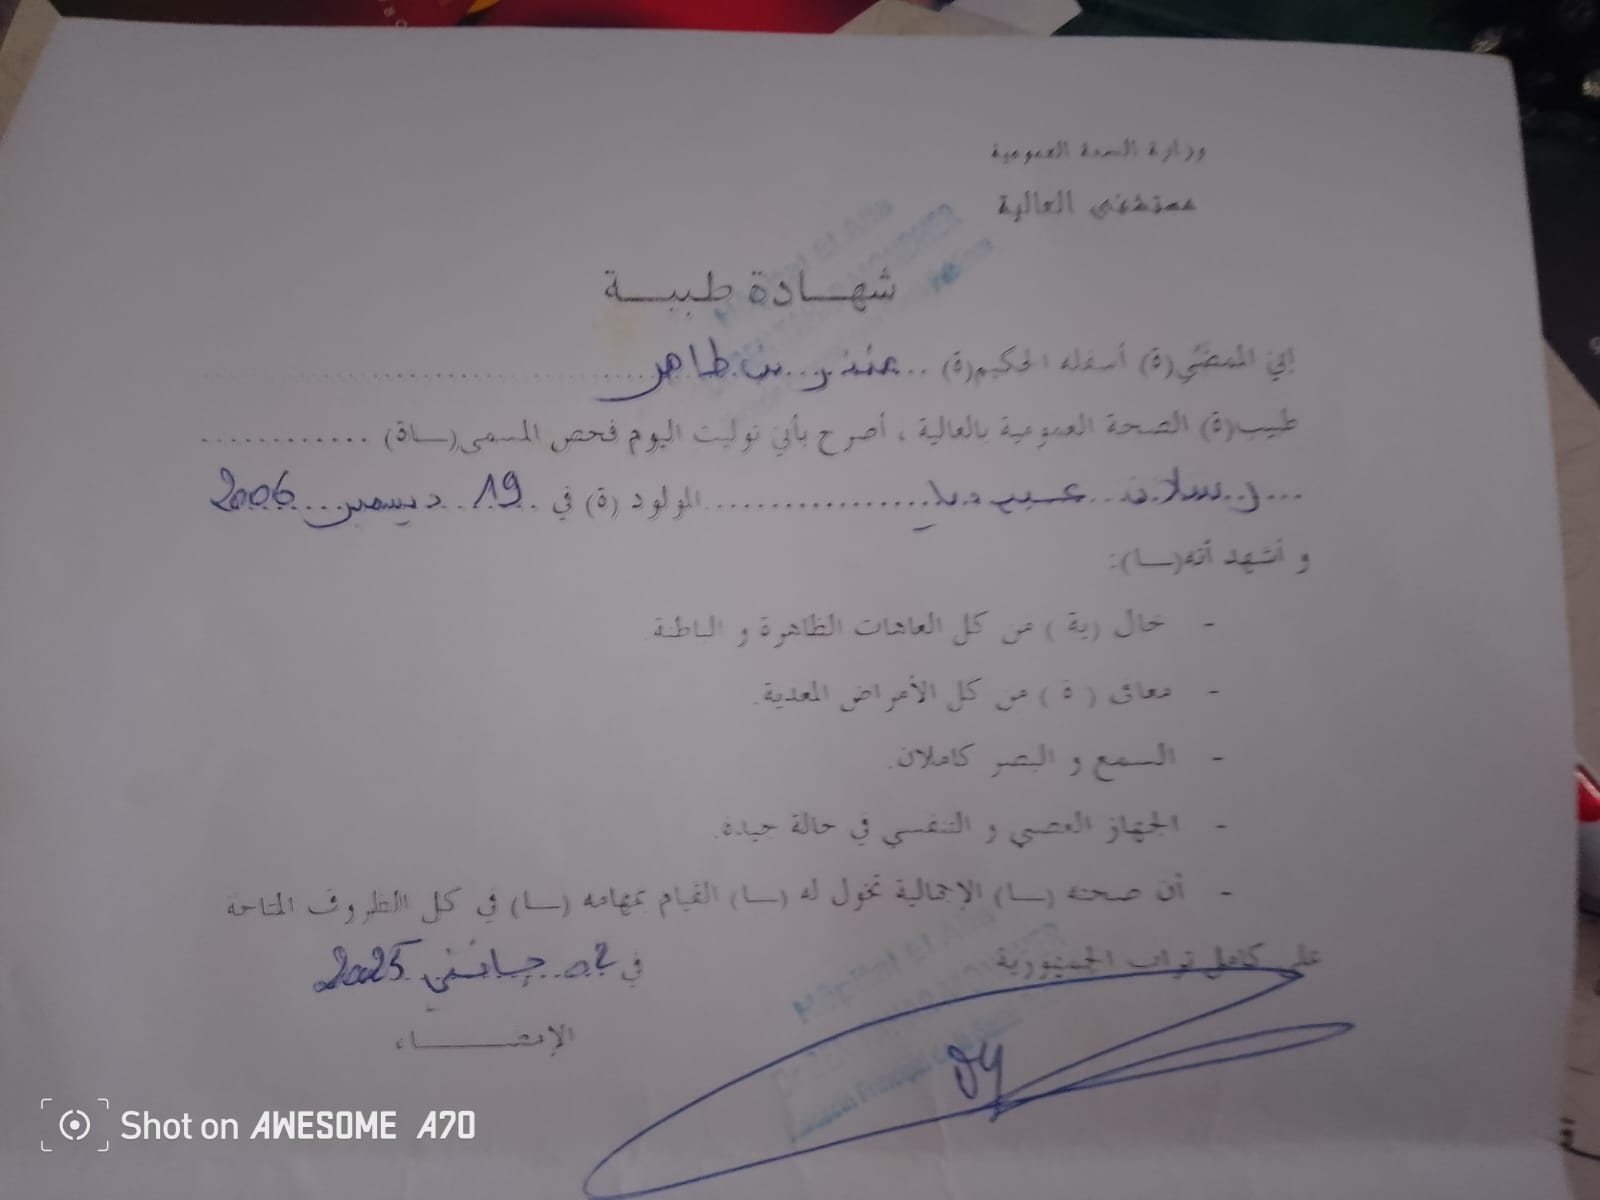 وزارة الصحة العمومية
مستشفى العالية
شهادة طبية
إني الممضي(ة) أسفله الحكيم(ة) .. منذر بن طاهر
طبيب(ة) الصحة العمومية بالعالية ، أصرح بأني توليت اليوم فحص المسمى(ــاة) ............
... رسلان ... المولود (ة) في . 19 . ديسمبر ... 2006
و أشهد أنه(ــا):
- خال (ية ) من كل العاهات الظاهرة و الباطنة.
- معافى ( ة ) من كل الأمراض المعدية.
- السمع و البصر كاملان.
- الجهاز العصبي و التنفسي في حالة جيدة.
- أن صحته (ــا) الإجمالية تخول له (ــا) القيام بمهامه (ــا) في كل الظروف المتاحة
على كامل تراب الجمهورية
في 02 جانفي 2025
الإمضــــــاء
Hôpital El Alia
Shot on AWESOME A70